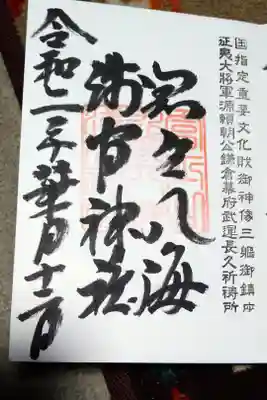 国指定重要文化財御神像三軀御鎮座
征夷大将軍源頼朝公鎌倉幕府武運長久祈祷所
八海
浅間神社
令和二年葉月十二日